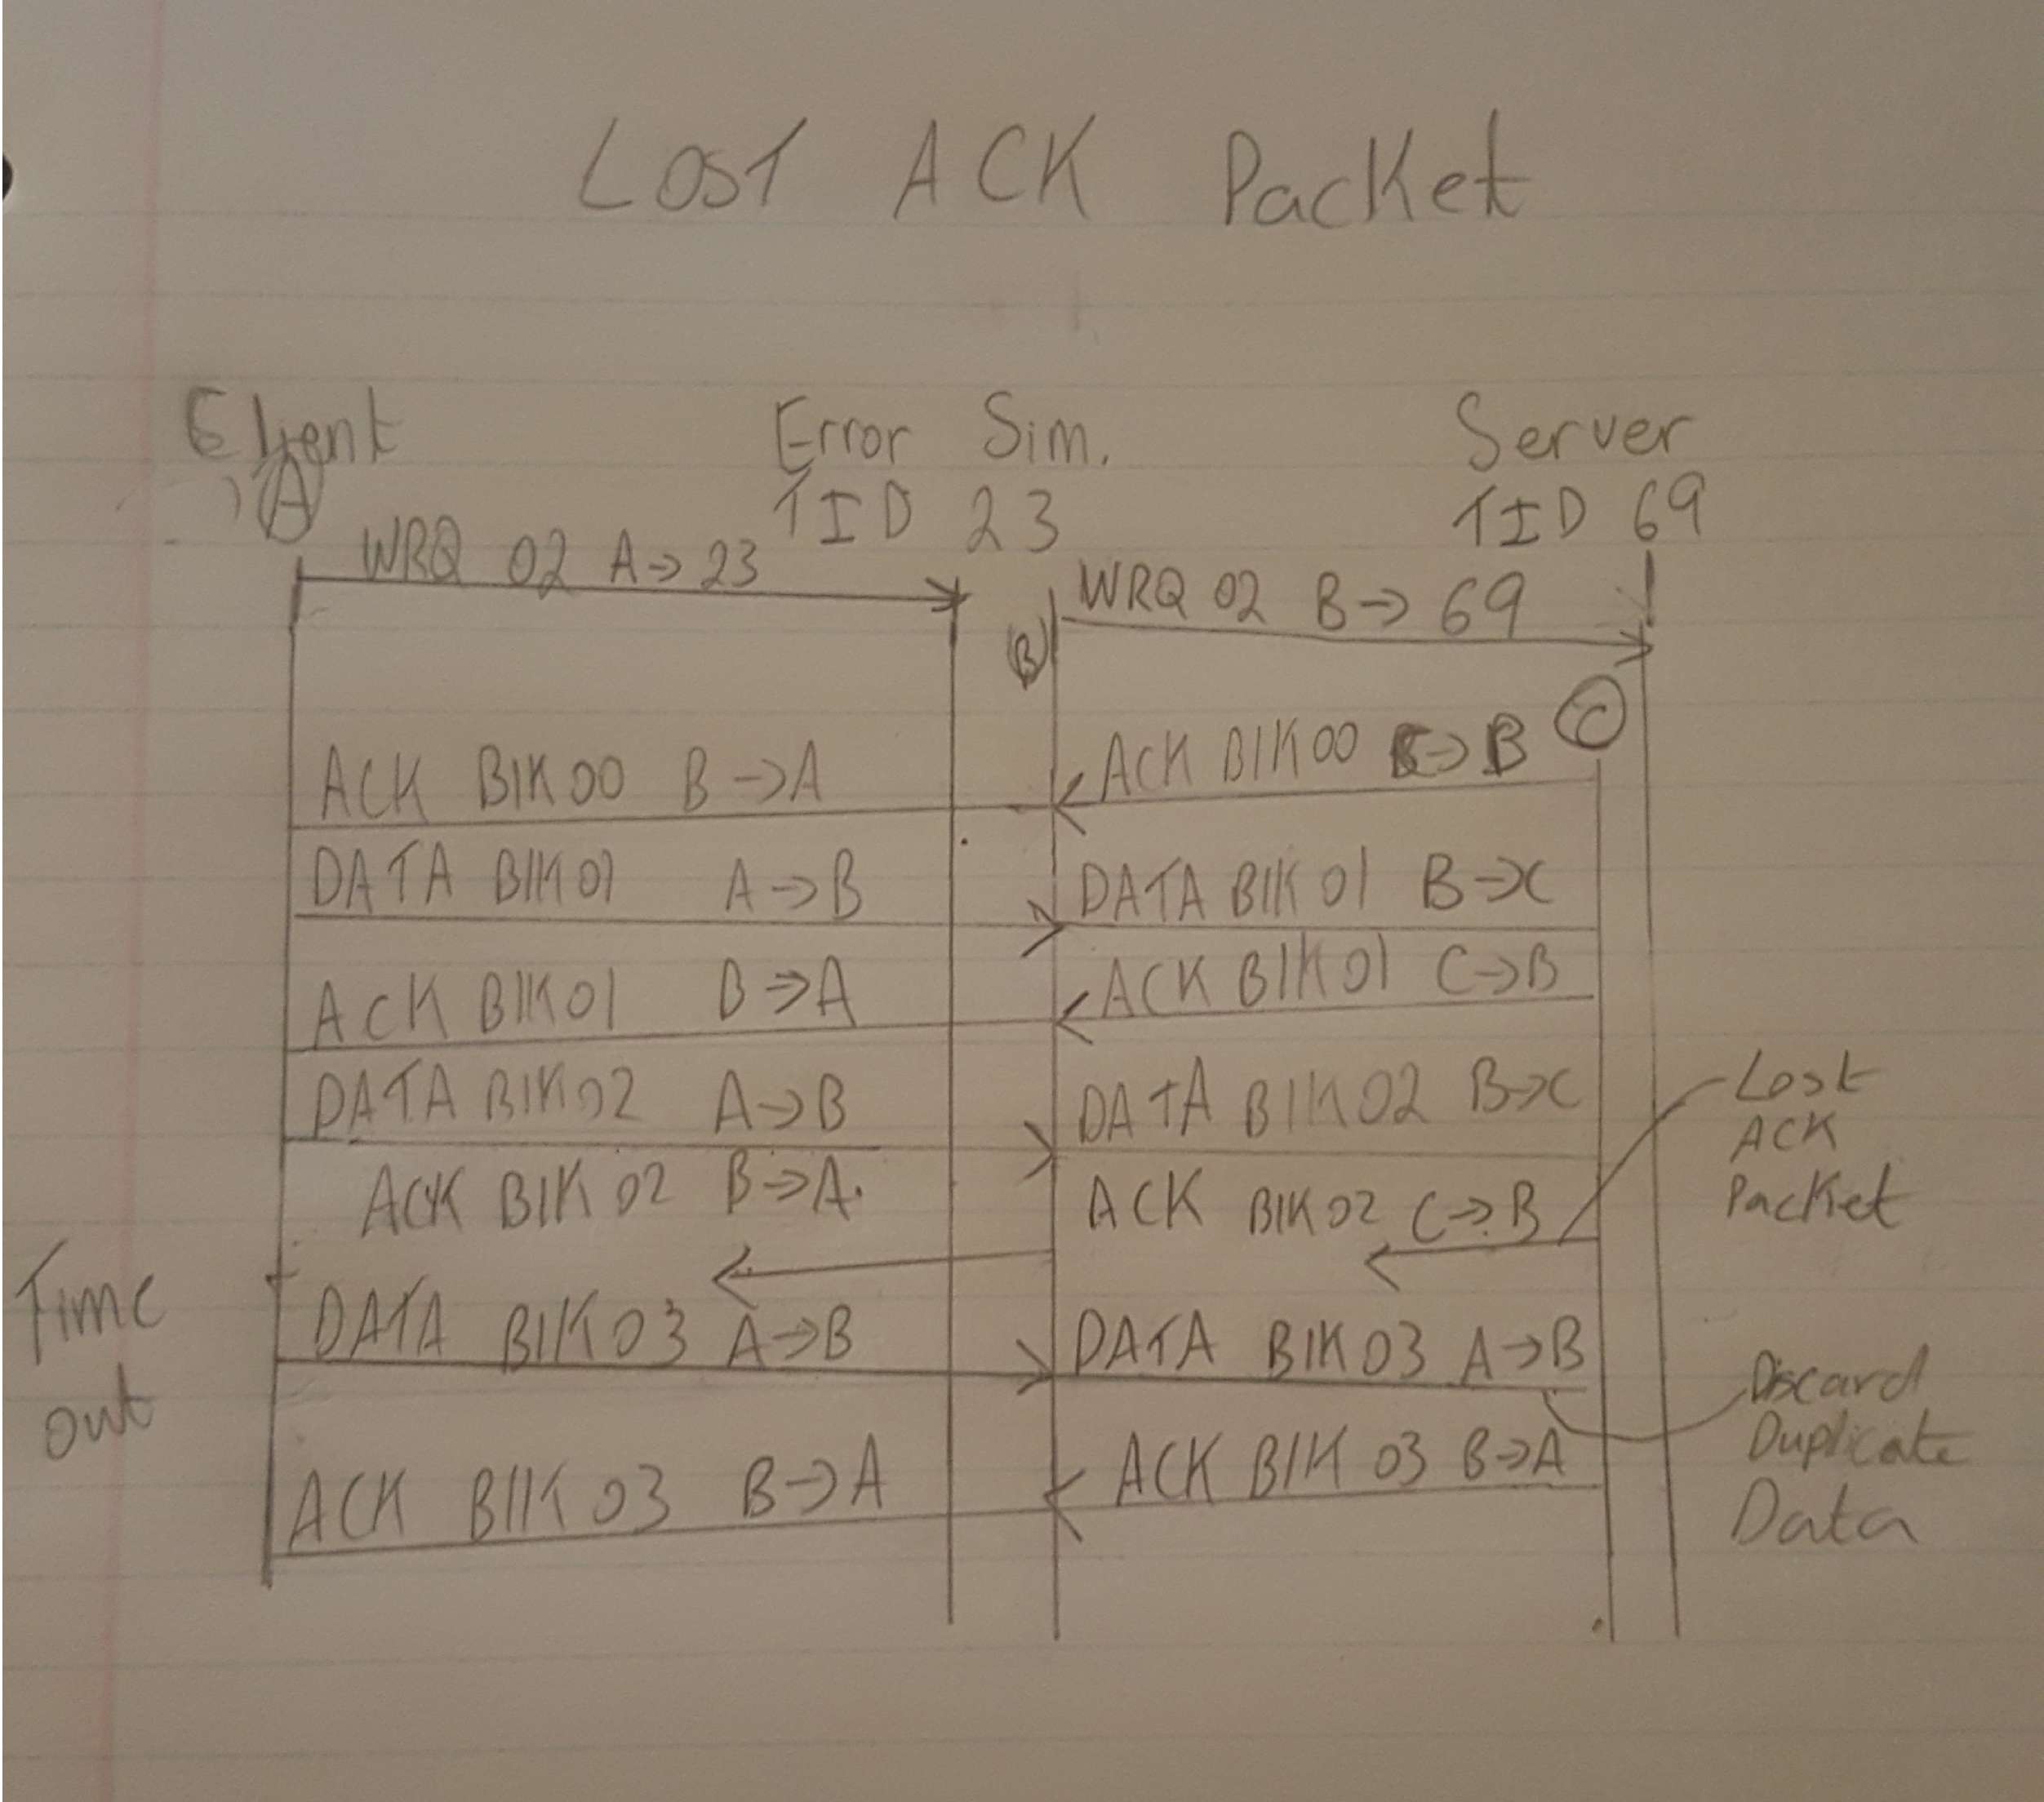 Lost ACK Packet
Client Error Sim. Server
A TID 23 TID 69
WRQ 02 A→23 WRQ 02 B→69
B
C
ACK Blk00 B→A ACK Blk00 C→B
DATA Blk01 A→B DATA Blk01 B→C
ACK Blk01 B→A ACK Blk01 C→B
DATA Blk02 A→B DATA Blk02 B→C
Lost
ACK
Packet
ACK Blk02 B→A ACK Blk02 C→B
Time
out
DATA Blk03 A→B DATA Blk03 A→B
Discard
Duplicate
Data
ACK Blk03 B→A ACK Blk03 B→A